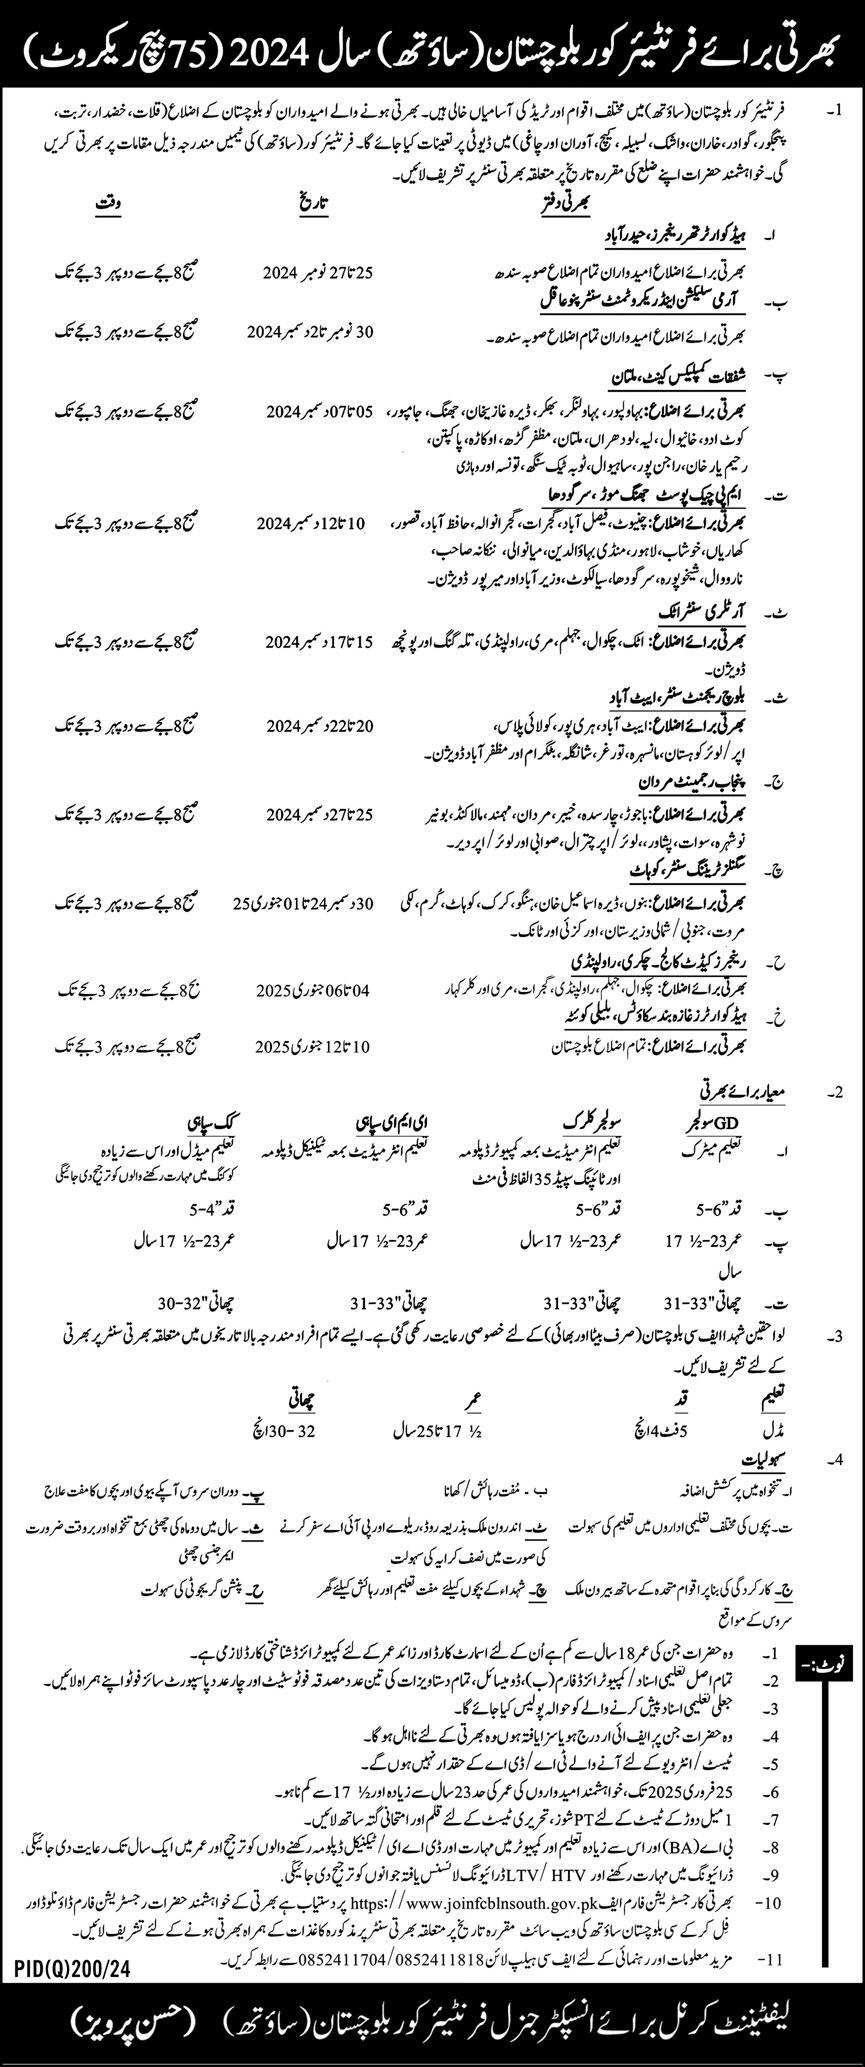 بھرتی برائے فرنٹیئر کور بلوچستان (ساؤتھ) سال 2024 (75 بیچ ریکروٹ)
1- فرنٹیئر کور بلوچستان (ساؤتھ) میں مختلف اقوام اور ٹریڈ کی آسامیاں خالی ہیں۔ بھرتی ہونے والے امیدواران کو بلوچستان کے اضلاع (قلات، خضدار، تربت،
پنجگور، گوادر، خاران، واشک، لسبیلہ، کیچ، آوران اور چاغی) میں ڈیوٹی پر تعینات کیا جائے گا۔ فرنٹیئر کور (ساؤتھ) کی ٹیمیں مندرجہ ذیل مقامات پر بھرتی کریں
گی۔ خواہشمند حضرات اپنے ضلع کی مقررہ تاریخ پر متعلقہ بھرتی سنٹر پر تشریف لائیں۔
بھرتی دفتر تاریخ وقت
ا۔ ہیڈ کوارٹر تھر رینجرز، حیدر آباد
بھرتی برائے اضلاع امیدواران تمام اضلاع صوبہ سندھ 25 تا 27 نومبر 2024 صبح 8 بجے سے دوپہر 3 بجے تک
ب۔ آرمی سلیکشن اینڈ ریکروٹمنٹ سنٹر پنوعاقل
بھرتی برائے اضلاع امیدواران تمام اضلاع صوبہ سندھ۔ 30 نومبر تا 2 دسمبر 2024 صبح 8 بجے سے دوپہر 3 بجے تک
پ۔ شفقات کمپلیکس کینٹ، ملتان
بھرتی برائے اضلاع: بہاولپور، بہاولنگر، بھکر، ڈیرہ غازیخان، جھنگ، جامپور، 05 تا 07 دسمبر 2024 صبح 8 بجے سے دوپہر 3 بجے تک
کوٹ ادو، خانیوال، لیہ، لودھراں، ملتان، مظفر گڑھ، اوکاڑہ، پاکپتن،
رحیم یار خان، راجن پور، ساہیوال، ٹوبہ ٹیک سنگھ، تونسہ اور وہاڑی
ت۔ ایم پی چیک پوسٹ جھنگ موڑ، سرگودھا
بھرتی برائے اضلاع: چنیوٹ، فیصل آباد، گجرات، گجرانوالہ، حافظ آباد، قصور، 10 تا 12 دسمبر 2024 صبح 8 بجے سے دوپہر 3 بجے تک
کھاریاں، خوشاب، لاہور، منڈی بہاؤالدین، میانوالی، ننکانہ صاحب،
نارووال، شیخوپورہ، سرگودھا، سیالکوٹ، وزیر آباد اور میر پور ڈویژن۔
ٹ۔ آرٹلری سنٹر اٹک
بھرتی برائے اضلاع: اٹک، چکوال، جہلم، مری، راولپنڈی، تلہ گنگ اور پونچھ 15 تا 17 دسمبر 2024 صبح 8 بجے سے دوپہر 3 بجے تک
ڈویژن۔
ث۔ بلوچ ریجمنٹ سنٹر، ایبٹ آباد
بھرتی برائے اضلاع: ایبٹ آباد، ہری پور، کولائی پلاس، 20 تا 22 دسمبر 2024 صبح 8 بجے سے دوپہر 3 بجے تک
اپر/لوئر کوہستان، مانسہرہ، تورغر، شانگلہ، بٹگرام اور مظفر آباد ڈویژن۔
ج۔ پنجاب رجمینٹ مردان
بھرتی برائے اضلاع: باجوڑ، چارسدہ، خیبر، مردان، مہمند، مالاکنڈ، بونیر 25 تا 27 دسمبر 2024 صبح 8 بجے سے دوپہر 3 بجے تک
نوشہرہ، سوات، پشاور،، لوئر/اپر چترال، صوابی اور لوئر/اپر دیر۔
چ۔ سگنلز ٹریننگ سنٹر، کوہاٹ
بھرتی برائے اضلاع: بنوں، ڈیرہ اسماعیل خان، ہنگو، کرک، کوہاٹ، کُرم، لکی 30 دسمبر 24 تا 01 جنوری 25 صبح 8 بجے سے دوپہر 3 بجے تک
مروت، جنوبی/شمالی وزیرستان، اورکزئی اور ٹانک۔
ح۔ رینجرز کیڈٹ کالج۔ چکری، راولپنڈی
بھرتی برائے اضلاع: چکوال، جہلم، راولپنڈی، گجرات، مری اور کلر کہار 04 تا 06 جنوری 2025 بج 8 بجے سے دوپہر 3 بجے تک
خ۔ ہیڈ کوارٹرز غازہ بند سکاؤٹس، بلیلی کوئٹہ
بھرتی برائے اضلاع: تمام اضلاع بلوچستان 10 تا 12 جنوری 2025 صبح 8 بجے سے دوپہر 3 بجے تک
2- معیار برائے بھرتی
GD سولجر سولجر کلرک ای ایم ای سپاہی کک سپاہی
ا۔ تعلیم میٹرک تعلیم انٹرمیڈیٹ بمعہ کمپیوٹر ڈپلومہ تعلیم انٹر میڈیٹ بمعہ ٹیکنیکل ڈپلومہ تعلیم میڈل اور اس سے زیادہ
اور ٹائپنگ سپیڈ 35 الفاظ فی منٹ کوکنگ میں مہارت رکھنے والوں کو ترجیح دی جائیگی
ب۔ قد "6-5 قد "6-5 قد "6-5 قد "4-5
پ۔ عمر 23-½ 17 عمر 23-½ 17 سال عمر 23-½ 17 سال عمر 23-½ 17 سال
سال
ت۔ چھاتی "33-31 چھاتی "33-31 چھاتی "33-31 چھاتی "32-30
3- لواحقین شہدا ایف سی بلوچستان (صرف بیٹا اور بھائی) کے لئے خصوصی رعایت رکھی گئی ہے۔ ایسے تمام افراد مندرجہ بالا تاریخوں میں متعلقہ بھرتی سنٹر پر بھرتی
کے لئے تشریف لائیں۔
تعلیم قد عمر چھاتی
مڈل 5 فٹ 4 انچ ½ 17 تا 25 سال 32 -30 انچ
4- سہولیات
ا۔ تنخواہ میں پرکشش اضافہ ب - مُفت رہائش/کھانا پ۔ دوران سروس آپکے بیوی اور بچوں کا مفت علاج
ت۔ بچوں کی مختلف تعلیمی اداروں میں تعلیم کی سہولت ٹ۔ اندرون ملک بذریعہ روڈ، ریلوے اور پی آئی اے سفر کرنے ث۔ سال میں دو ماہ کی چھٹی بمع تنخواہ اور بروقت ضرورت
کی صورت میں نصف کرایہ کی سہولت ایمرجنسی چھٹی
ج۔ کارکردگی کی بنا پر اقوام متحدہ کے ساتھ بیرون ملک چ۔ شہداء کے بچوں کیلئے مفت تعلیم اور رہائش کیلئے گھر ح۔ پنشن گریجوٹی کی سہولت
سروس کے مواقع
نوٹ:-
1- وہ حضرات جن کی عمر 18 سال سے کم ہے اُن کے لئے اسمارٹ کارڈ اور زائد عمر کے لئے کمپیوٹرائزڈ شناختی کارڈ لازمی ہے۔
2- تمام اصل تعلیمی اسناد/کمپیوٹرائزڈ فارم (ب)، ڈومیسائل، تمام دستاویزات کی تین عدد مصدقہ فوٹو سٹیٹ اور چار عدد پاسپورٹ سائز فوٹو اپنے ہمراہ لائیں۔
3- جعلی تعلیمی اسناد پیش کرنے والے کو حوالہ پولیس کیا جائے گا۔
4- وہ حضرات جن پر ایف آئی ار درج ہو یا سزا یافتہ ہوں وہ بھرتی کے لئے نااہل ہو گا۔
5- ٹیسٹ/انٹرویو کے لئے آنے والے ٹی اے/ڈی اے کے حقدار نہیں ہوں گے۔
6- 25 فروری 2025 تک، خواہشمند امیدواروں کی عمر کی حد 23 سال سے زیادہ اور ½ 17 سے کم نا ہو۔
7- 1 میل دوڑ کے ٹیسٹ کے لئے PT شوز، تحریری ٹیسٹ کے لئے قلم اور امتحانی گتہ ساتھ لائیں۔
8- بی اے (BA) اور اس سے زیادہ تعلیم اور کمپیوٹر میں مہارت اور ڈی اے ای/ٹیکنیکل ڈپلومہ رکھنے والوں کو ترجیح اور عمر میں ایک سال تک رعایت دی جائیگی۔
9- ڈرائیونگ میں مہارت رکھنے اور LTV/ HTV ڈرائیونگ لائسنس یافتہ جوانوں کو ترجیح دی جائیگی۔
10- بھرتی کا رجسٹریشن فارم ایف https://www.joinfcblnsouth.gov.pk پر دستیاب ہے بھرتی کے خواہشمند حضرات رجسٹریشن فارم ڈاؤنلوڈ اور
فِل کر کے سی بلوچستان ساؤتھ کی ویب سائٹ مقررہ تاریخ پر متعلقہ بھرتی سنٹر پر مذکورہ کاغذات کے ہمراہ بھرتی ہونے کے لئے تشریف لائیں۔
11- مزید معلومات اور رہنمائی کے لئے ایف سی ہیلپ لائن 0852411818/0852411704 سے رابطہ کریں۔
PID(Q)200/24
لیفٹیننٹ کرنل برائے انسپکٹر جنرل فرنٹیئر کور بلوچستان (ساؤتھ) (حسن پرویز)